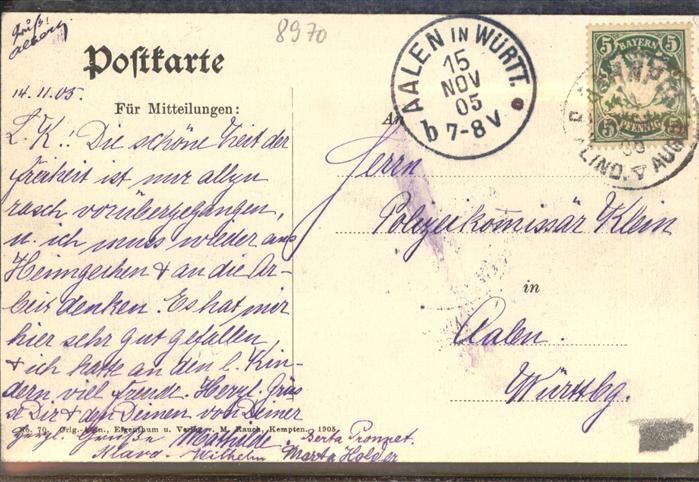 Gruß!
Albert
8970
Postkarte
14. 11. 05.
Für Mitteilungen:
L. K.! Die schöne Zeit der
Freiheit ist nur allzu
rasch vorübergegangen,
u. ich muss wieder ans
Heimgehen & an die Ar-
beit denken. Es hat mir
hier sehr gut gefallen
& ich hatte an den l. Kin-
dern viel Freude. Herzl. Grüs
se Dir & den Deinen von Deiner
Mathilde.
No. 70. Orig.-Aufn., Eigenthum u. Verlag v. M. Rauch, Kempten. 1905
Herzl. Grüße
Berta
Klara - Wilhelm Marta Holder
AALEN IN WÜRTT.
15
NOV
05
b 7-8 V
5 BAYERN 5
5 PFENNIG 5
LIND. AUG
An
Herrn
Polizeikommissär Klein
in
Aalen.
Württbg.